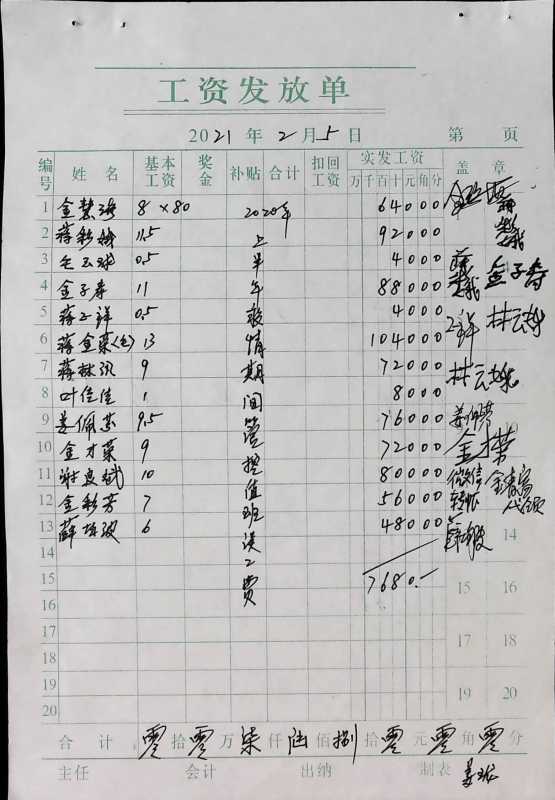 工资发放单
2021 年 2 月 5 日 第 页
编号 姓 名 基本工资 奖金 补贴 合计 扣回工资 实发工资 盖 章
万 千 百 十 元 角 分
1 金慧海 8 ×80 64000
2 蒋彩娥 11.5 92000
3 0.5 4000
4 金子寿 11 88000 金子寿
5 蒋正祥 0.5 4000
6 蒋金栗 13 104000
7 蒋林汛 9 72000
8 叶佳佳 1 8000
9 姜佩芬 9.5 76000 姜佩芬
10 金才荣 9 72000
11 谢良斌 10 80000 微信
12 金彩芳 7 56000 转帐 代领
13 薛 6 48000
2020年上半年疫情期间管控值班误工费
14 14
15 7680.— 15 16
16
17 17 18
18
19 19 20
20
合 计 零 拾 零 万 柒 仟 陆 佰 捌 拾 零 元 零 角 零 分
主任 会计 出纳 制表